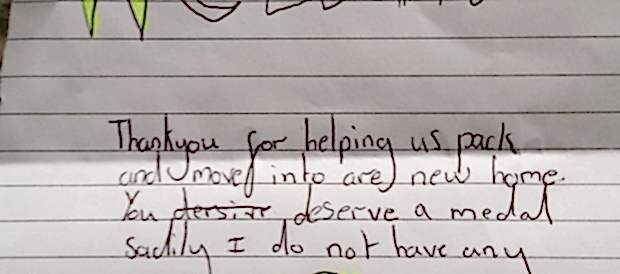 Thankyou for helping us pack
and move into are new home.
You dersive deserve a medal
Sadily I do not have any